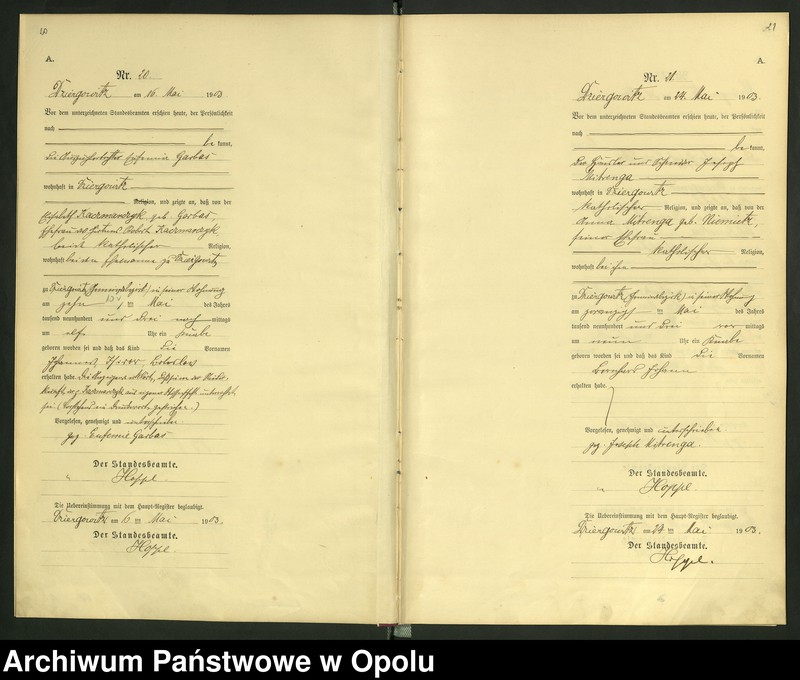 20
A.
Nr. 20.
Dziergowitz am 16. Mai 1903.
Vor dem unterzeichneten Standesbeamten erschien heute, der Persönlichkeit
nach
be kannt,
die Eufemia Garbas
wohnhaft in Dziergowitz
Religion, und zeigte an, daß von der
Elisabeth Kaczmarczyk geb. Garbas,
Ehefrau des Kaczmarczyk
beide katholischer Religion,
wohnhaft bei dem Ehemanne zu
zu Dziergowitz in seiner Wohnung
am zehn ten Mai des Jahres
tausend neunhundert und drei nach mittags
um elf Uhr ein Knabe
geboren worden sei und daß das Kind die Vornamen
Johannes
erhalten habe. Die
Kaczmarczyk aus eigener
sei.
Vorgelesen, genehmigt und unterschrieben
gez. Eufemie Garbas
Der Standesbeamte.
" Hoppe.
Die Uebereinstimmung mit dem Haupt-Register beglaubigt.
Dziergowitz am 16 ten Mai 1903.
Der Standesbeamte.
Hoppe
21
A.
Nr. 21.
Dziergowitz am 24. Mai 1903.
Vor dem unterzeichneten Standesbeamten erschien heute, der Persönlichkeit
nach
be kannt,
Der Häusler und Schneider Joseph
Mitrenga
wohnhaft in Dziergowitz
katholischer Religion, und zeigte an, daß von der
Anna Mitrenga geb. Niemietz,
seiner Ehefrau
katholischer Religion,
wohnhaft bei ihm
zu Dziergowitz in seiner Wohnung
am zwanzigs ten Mai des Jahres
tausend neunhundert und drei vor mittags
um neun Uhr ein Knabe
geboren worden sei und daß das Kind die Vornamen
Bernhard Johann
erhalten habe.
Vorgelesen, genehmigt und unterschrieben
gez. Joseph Mitrenga.
Der Standesbeamte.
" Hoppe.
Die Uebereinstimmung mit dem Haupt-Register beglaubigt.
Dziergowitz am 24 ten Mai 1903.
Der Standesbeamte.
Hoppe.
Archiwum Państwowe w Opolu